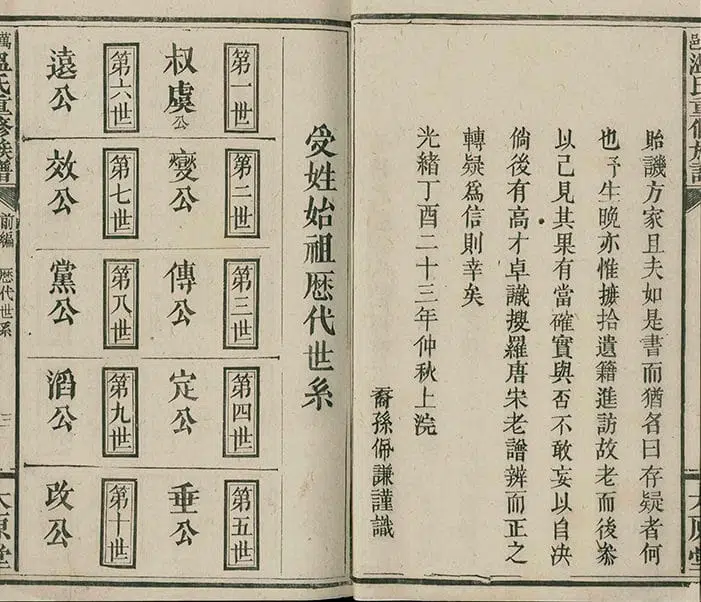 邑溫氏重修族譜
太原堂
貽譏方家且夫如是書而猶名曰存疑者何
也予生晚亦惟摭拾遺籍進訪故老而後叅
以己見其果有當確實與否不敢妄以自決
倘後有高才卓識搜羅唐宋老譜辨而正之
轉疑爲信則幸矣
光緒丁酉二十三年仲秋上浣
裔孫佩謙謹識
受姓始祖歷代世系
第一世
叔虞公
第二世
變公
第三世
傳公
第四世
定公
第五世
垂公
第六世
遠公
第七世
效公
第八世
黨公
第九世
滔公
第十世
改公
萬溫氏重修族譜
前編
歷代世系
三
太原堂